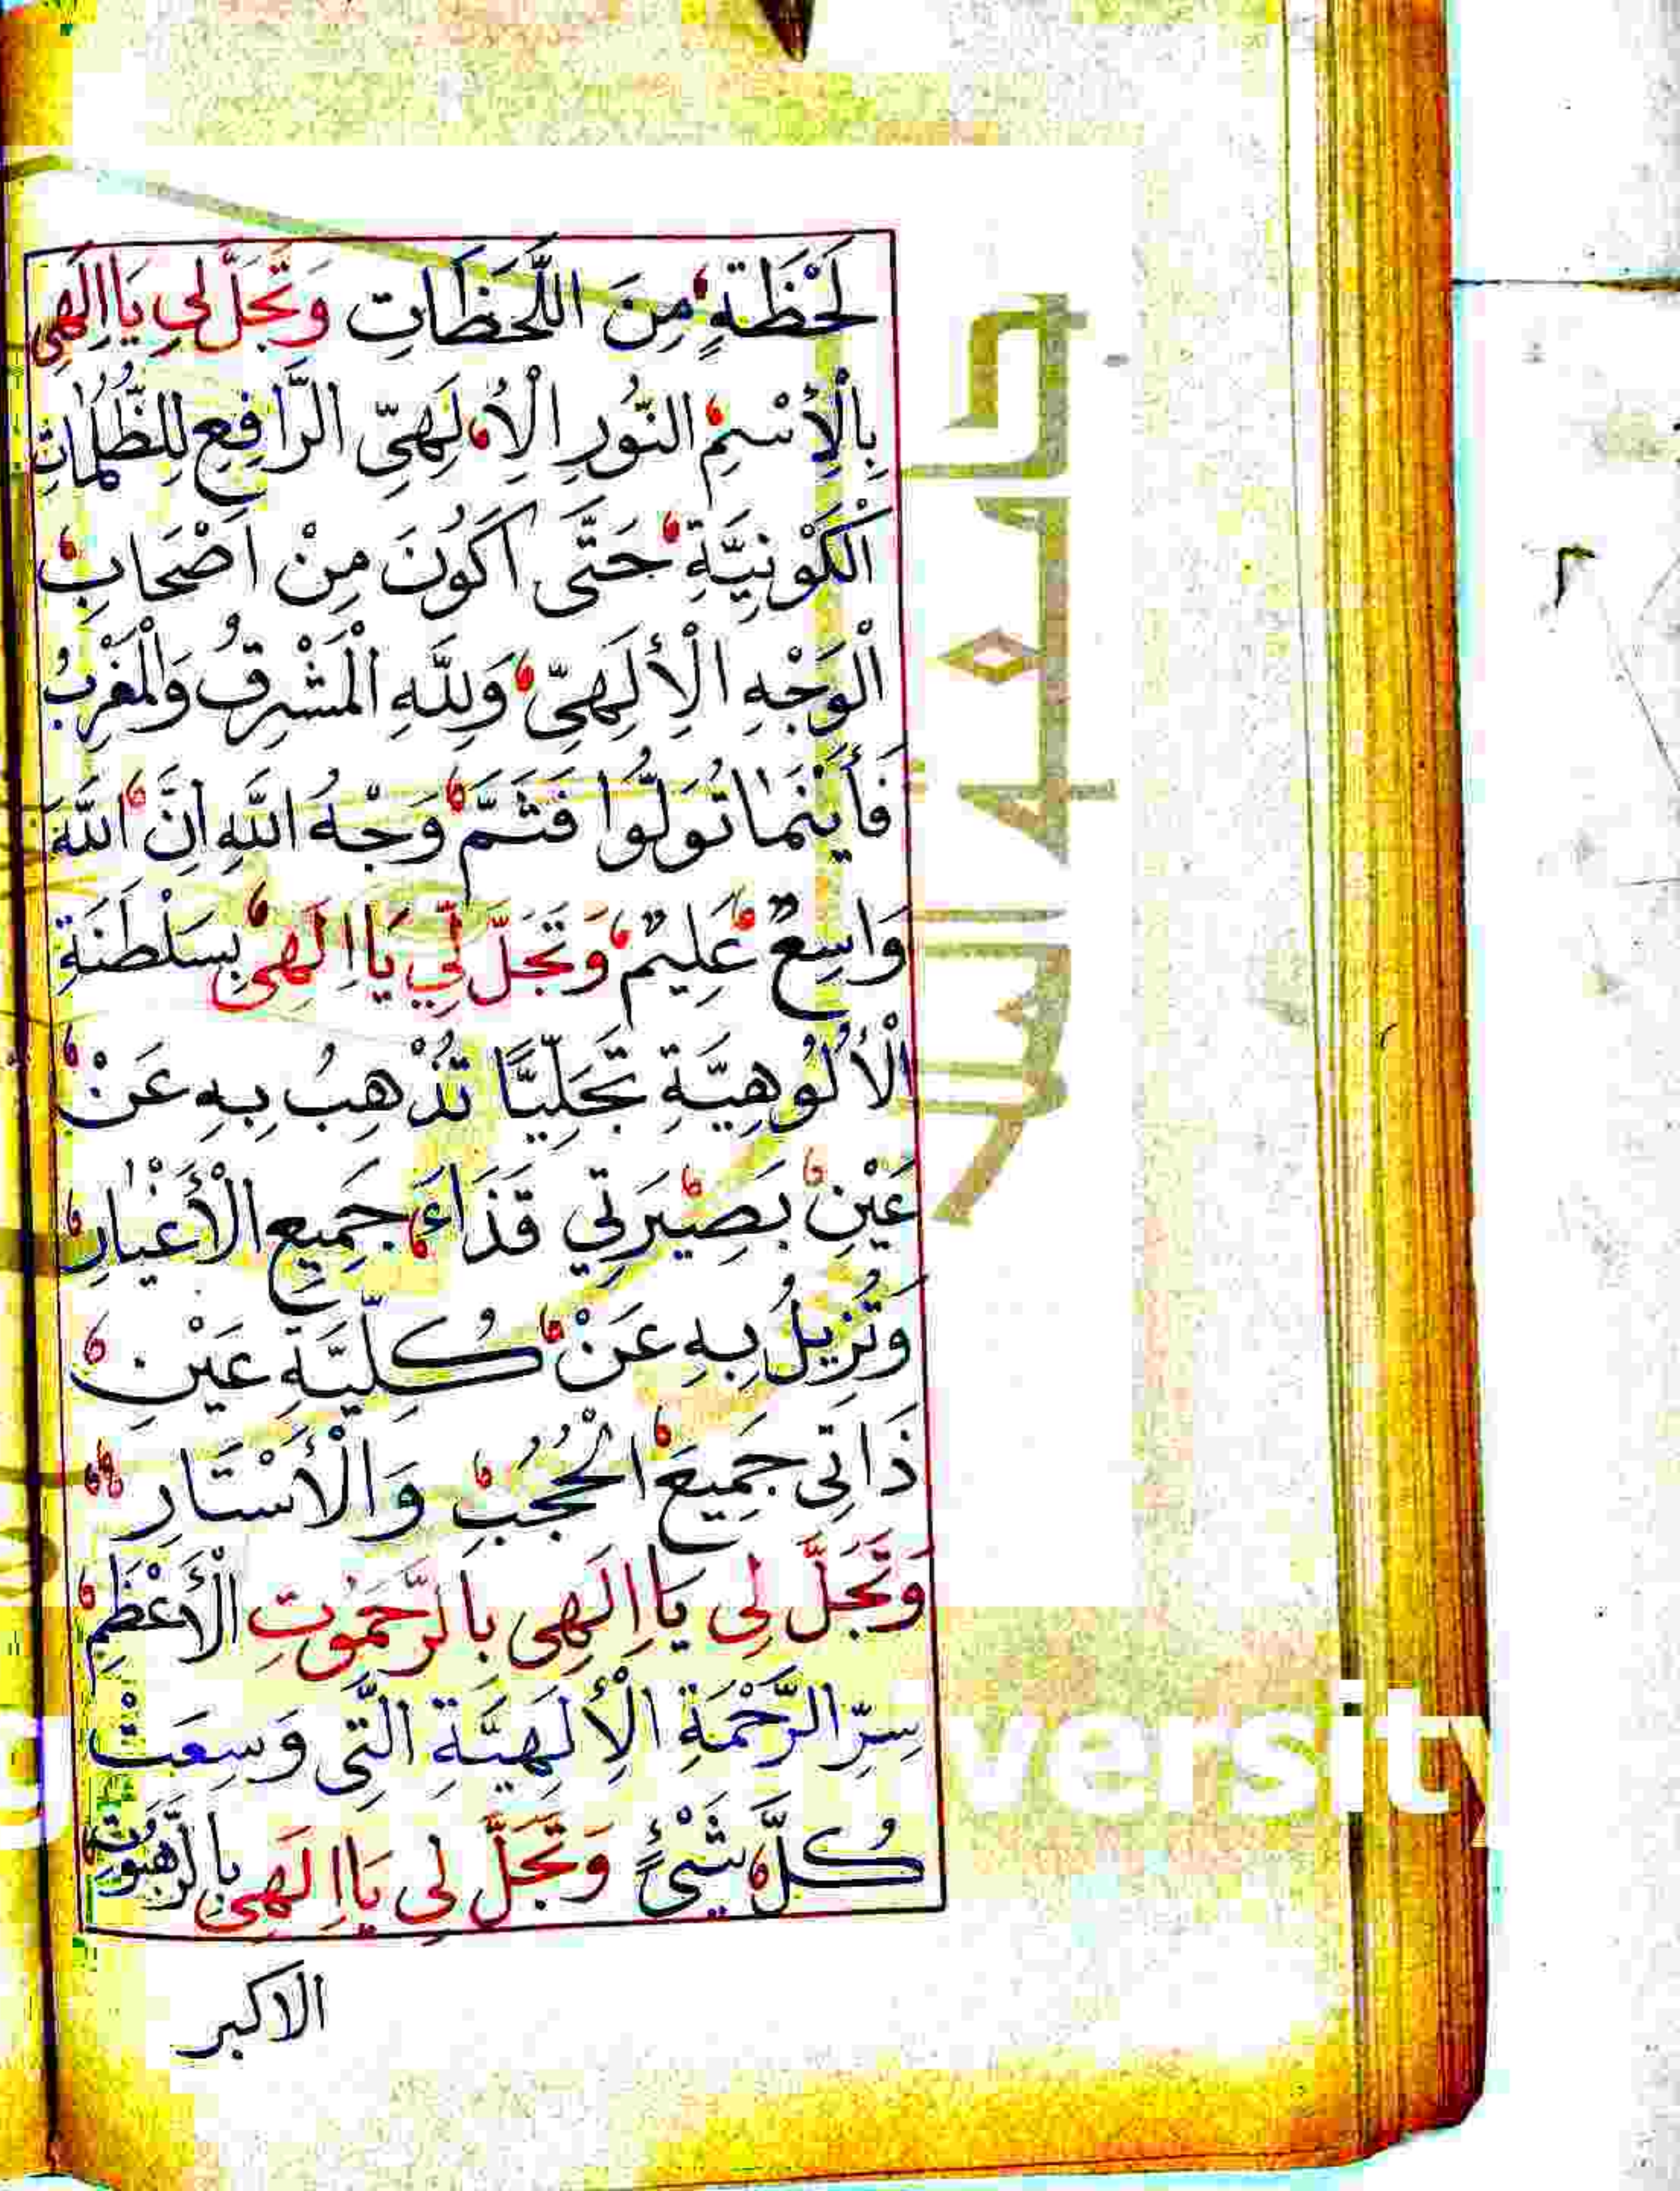 لَحْظَةٍ مِنَ اللَّحَظَاتِ وَتَجَلَّ لِي يَا اِلَهِي
بِالْاِسْمِ النُّورِ الْاِلَهِيِّ الرَّافِعِ لِلظُّلُمَاتِ
الْكَوْنِيَّةِ حَتَّى اَكُونَ مِنْ اَصْحَابِ
الْوَجْهِ الْاِلَهِيِّ وَلِلَّهِ الْمَشْرِقُ وَالْمَغْرِبُ
فَأَيْنَمَا تُوَلُّوا فَثَمَّ وَجْهُ اللَّهِ اِنَّ اللَّهَ
وَاسِعٌ عَلِيمٌ وَتَجَلَّ لِي يَا اِلَهِي بِسَلْطَنَةِ
الْأُلُوهِيَّةِ تَجَلِّيًّا تُذْهِبُ بِهِ عَنْ
عَيْنِ بَصِيْرَتِي قَذَاءَ جَمِيعِ الْأَغْيَارِ
وَتُزِيلُ بِهِ عَنْ كُلِّيَّةِ عَيْنِ
ذَاتِى جَمِيعَ الْحُجُبِ وَالْأَسْتَارِ
وَتَجَلَّ لِي يَا اِلَهِى بِالرَّحَمُوتِ الْأَعْظَمِ
سِرِّ الرَّحْمَةِ الْإِلَهِيَّةِ الَّتِى وَسِعَتْ
كُلَّ شَيْئٍ وَتَجَلَّ لِى يَا اِلَهِي بِالرَّهَبُوتِ
الاكبر
versity